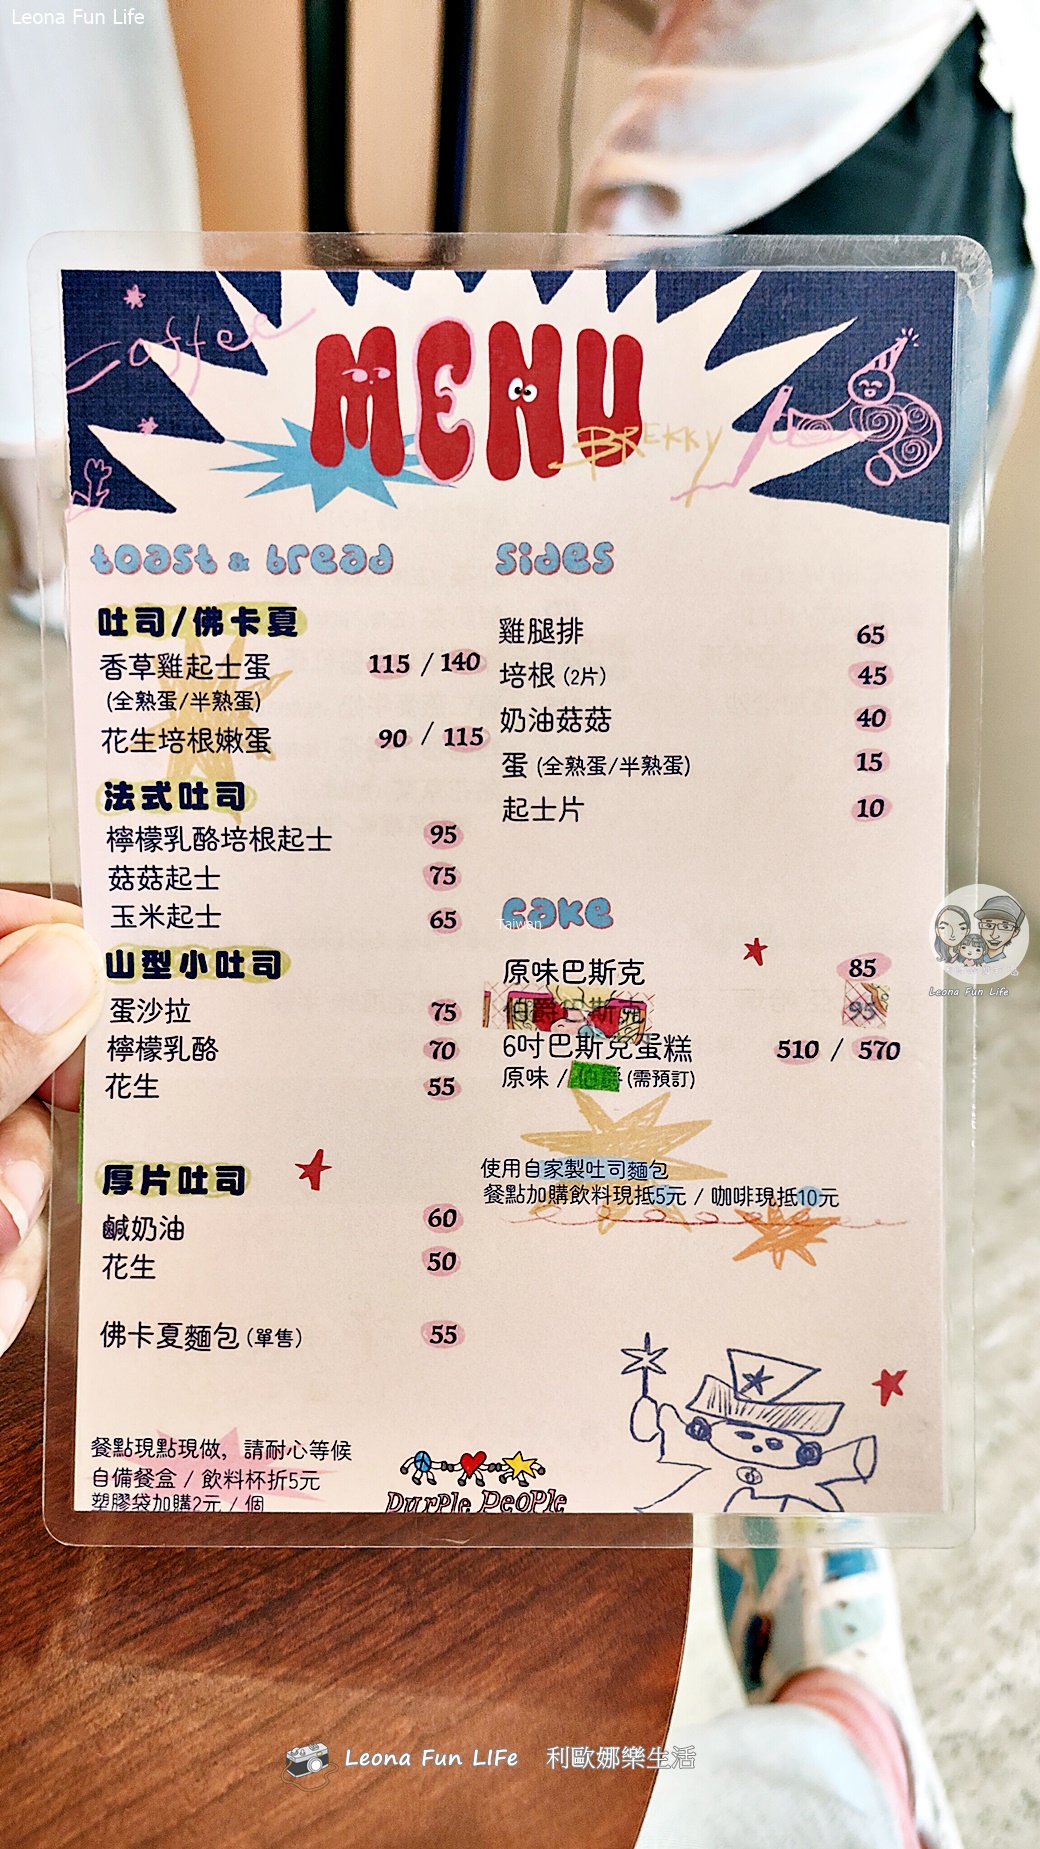 Leona Fun Life
coffee
MENU
BREKKY
toast & bread
吐司/佛卡夏
香草雞起士蛋 115 / 140
(全熟蛋/半熟蛋)
花生培根嫩蛋 90 / 115
法式吐司
檸檬乳酪培根起士 95
菇菇起士 75
玉米起士 65
山型小吐司
蛋沙拉 75
檸檬乳酪 70
花生 55
厚片吐司
鹹奶油 60
花生 50
佛卡夏麵包 (單售) 55
餐點現點現做，請耐心等候
自備餐盒 / 飲料杯折5元
塑膠袋加購2元 / 個
PurPle PeoPle
sides
雞腿排 65
培根 (2片) 45
奶油菇菇 40
蛋 (全熟蛋/半熟蛋) 15
起士片 10
cake
Taiwan
原味巴斯克 85
伯爵巴斯克 95
6吋巴斯克蛋糕 510 / 570
原味 / (需預訂)
使用自家製吐司麵包
餐點加購飲料現抵5元 / 咖啡現抵10元
Leona Fun Life
Leona Fun LIfe 利歐娜樂生活